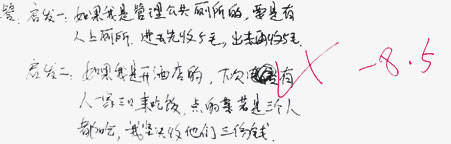 答: 启发一: 如果我是管理公共厕所的, 要是有
人上厕所, 进去先收5毛, 出去再收5毛.
启发二: 如果我是开酒店的, 下次有
人一家三口来吃饭, 点的菜若是三个人
都吃, 我坚决收他们三份钱.
-8.5